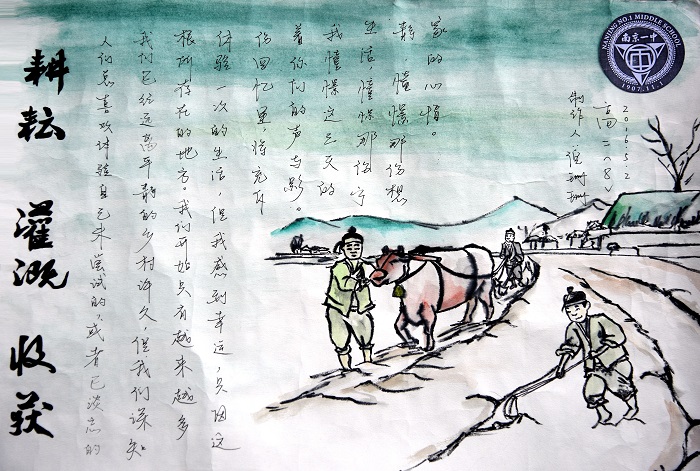 耕耘 灌溉 收获
人们总喜欢体验自己未尝试的，或者已淡忘的
我们已经远离平静的乡村许久，但我们深知
根所存在的地方。我们开始只有越来越多
体验一次的生活，但我感到幸运，只因这
份回忆里，将充斥
着你们的声与影。
我憧憬这三天的
生活，憧憬那份宁
静，憧憬那份想
家的心情。
制作人 珊珊
高二〈8〉
2016.5.2
NANJING NO.1 MIDDLE SCHOOL
南京一中
1907.11.1